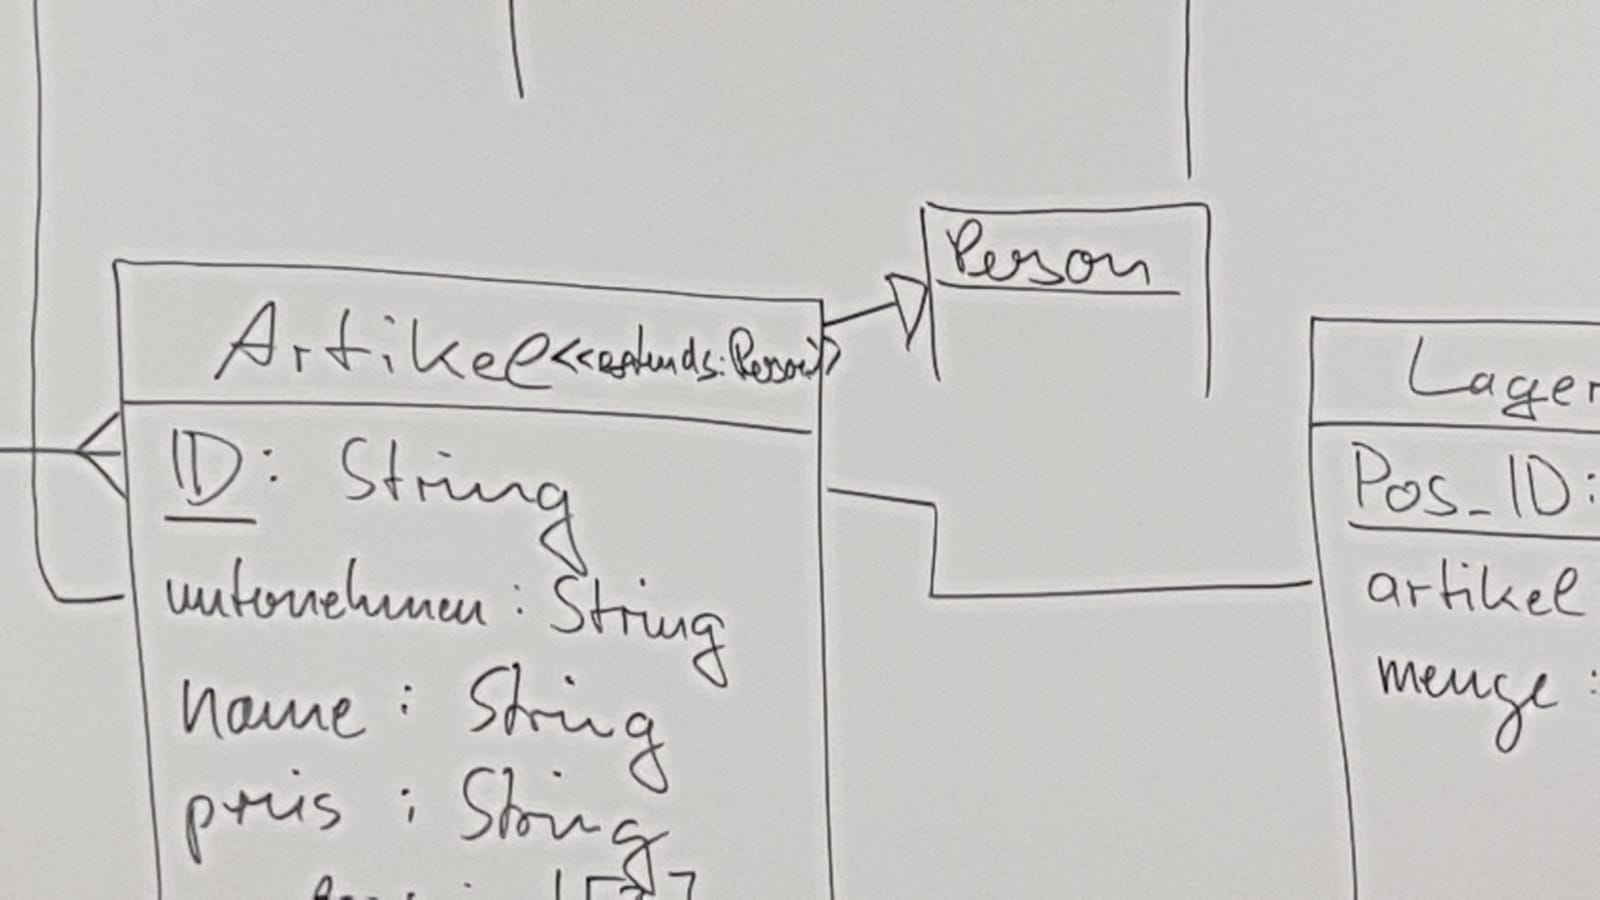 Person
Artikel <<extends: Person>>
ID: String
unternehmen : String
name : String
preis : String
Lager
Pos_ID:
artikel
menge :